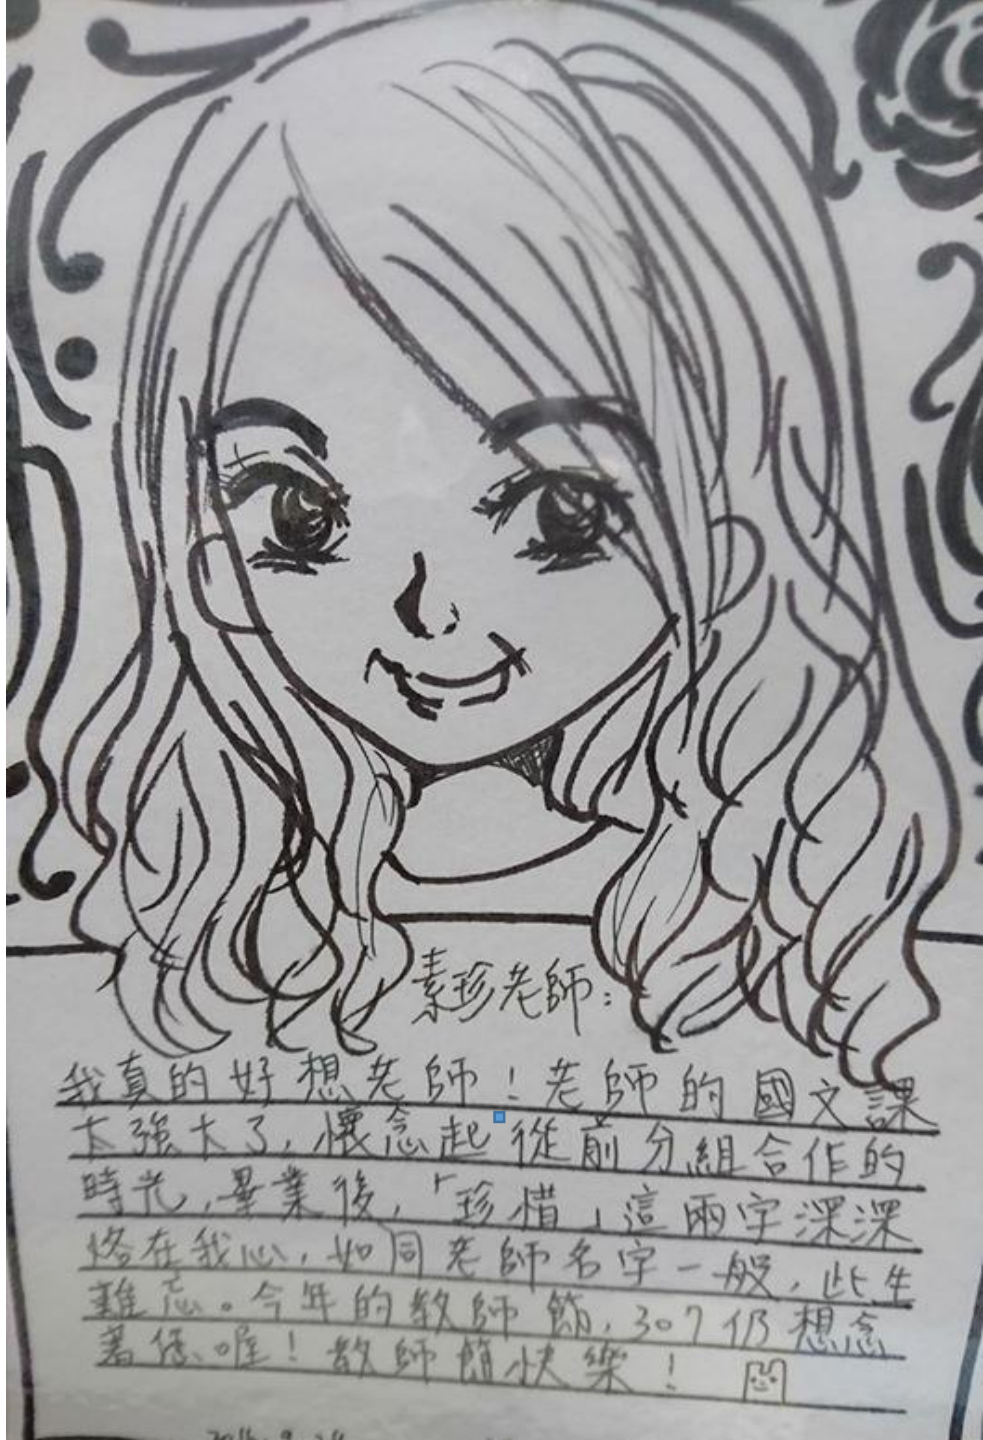 素珍老師：
我真的好想老師！老師的國文課
太強大了，懷念起從前分組合作的
時光，畢業後，「珍惜」這兩字深深
烙在我心，如同老師名字一般，此生
難忘。今年的教師節，307仍想念
著您喔！教師節快樂！